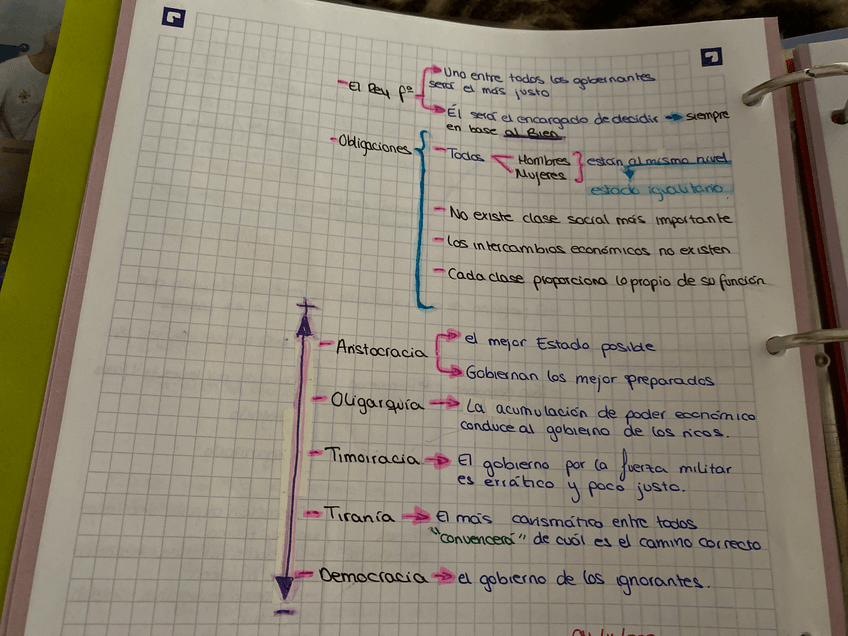 - El Rey fº
Uno entre todos los gobernantes
será el más justo
Él será el encargado de decidir → siempre
en base al Bien
- Obligaciones
- Todos
Hombres
Mujeres
están al mismo nivel
estado igualitario
- No existe clase social más importante
- Los intercambios económicos no existen
- Cada clase proporciona lo propio de su función
+
- Aristocracia
el mejor Estado posible
Gobiernan los mejor preparados
- Oligarquía → La acumulación de poder económico
conduce al gobierno de los ricos.
- Timocracia → El gobierno por la fuerza militar
es errático y poco justo.
- Tiranía → El más carismático entre todos
"convencerá" de cuál es el camino correcto
- Democracia → el gobierno de los ignorantes.
-